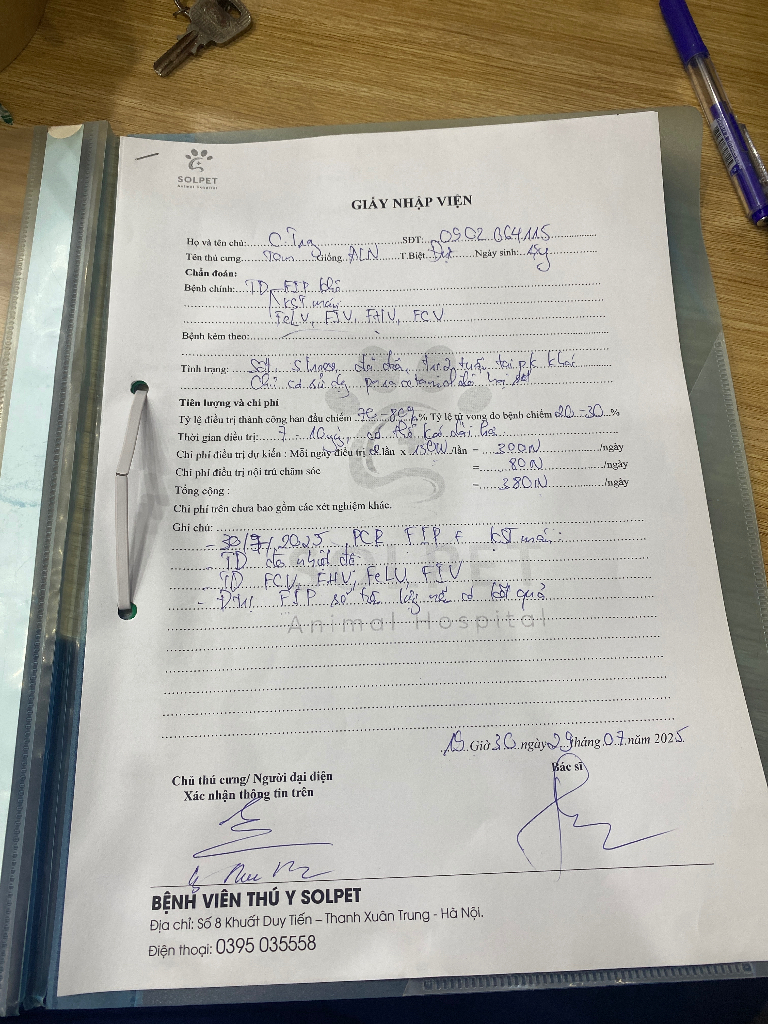 SOLPET
Animal Hospital
GIẤY NHẬP VIỆN
Họ và tên chủ: C. Trg SĐT: 0902 064 115
Tên thú cưng Giống ĐLN T.Biệt: Đực Ngày sinh: 4y
Chẩn đoán:
Bệnh chính: TD FIP khô
KST máu
FeLV, FIV, FHV, FCV
Bệnh kèm theo:
Tình trạng: Sốt 5 ngày, tại pk khác
Chỉ có sử dg paracetamol để hạ sốt
Tiên lượng và chi phí
Tỷ lệ điều trị thành công ban đầu chiếm 70-80% % Tỷ lệ tử vong do bệnh chiếm 20-30 %
Thời gian điều trị: 7 - 10 ngày, có thể kéo dài
Chi phí điều trị dự kiến : Mỗi ngày điều trị 2 lần x 150N /lần = 300N /ngày
Chi phí điều trị nội trú chăm sóc = 80N /ngày
Tổng cộng : = 380N /ngày
Chi phí trên chưa bao gồm các xét nghiệm khác.
Ghi chú:
- 30/7/2025 PCR FIP + KST máu.
- TD
- TD FCV, FHV, FeLV, FIV
- Đtrị FIP có kết quả
SOLPET
Animal Hospital
19 Giờ 30 ngày 29 tháng 07 năm 2025
Chủ thú cưng/ Người đại diện
Xác nhận thông tin trên
Bác sĩ
BỆNH VIỆN THÚ Y SOLPET
Địa chỉ: Số 8 Khuất Duy Tiến – Thanh Xuân Trung - Hà Nội.
Điện thoại: 0395 035558